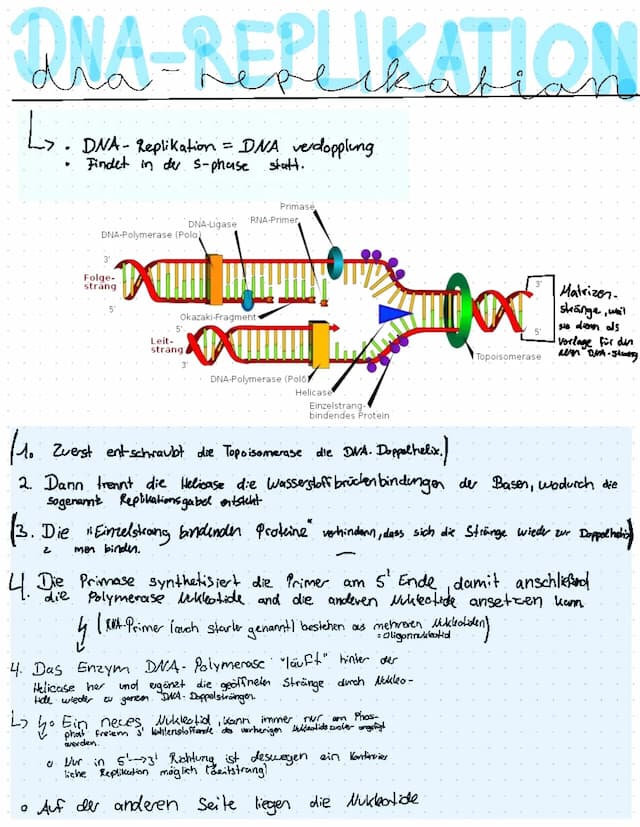 DNA-REPLIKATION
dna-replikation
DNA-Replikation = DNA verdopplung
Findet in der S-phase statt.
Primase
DNA-Ligase RNA-Primer
DNA-Polymerase (Polα)
3'
Folge-
strang
5'
Okazaki-Fragment
5'
Leit-
strang
3'
DNA-Polymerase (Polδ)
Helicase
Einzelstrang-
bindendes Protein
Topoisomerase
3'
5'
Matrizen-
stränge, weil
sie dienen als
Vorlage für den
neuen DNA-Strang
(1. Zuerst entschraubt die Topoisomerase die DNA-Doppelhelix.)
2. Dann trennt die Helicase die Wasserstoffbrückenbindungen der Basen, wodurch die
sogenannte Replikationsgabel entsteht
(3. Die "Einzelstrang bindenden Proteine" verhindern, dass sich die Stränge wieder zur Doppelhelix)
z men binden.
4. Die Primase synthetisiert die Primer am 5' Ende, damit anschließend
die Polymerase Nukleotide and die anderen Nukleotide ansetzen kann
(RNA-Primer (auch Starter genannt) bestehen aus mehreren Nukleotiden)
= Oligonukleotid
4. Das Enzym DNA-Polymerase "läuft" hinter der
Helicase her und ergänzt die geöffneten Stränge durch Nukleo-
tide wieder zu ganzen DNA-Doppelsträngen.
Ein neues Nukleotid, kann immer nur am Phos-
phat freiem 3' Kohlenstoffende des vorherigen Nukleotids angefügt
werden.
Nur in 5'→3' Richtung ist deswegen ein kontinuier
liche Replikation möglich (Leitstrang)
Auf der anderen Seite liegen die Nukleotide